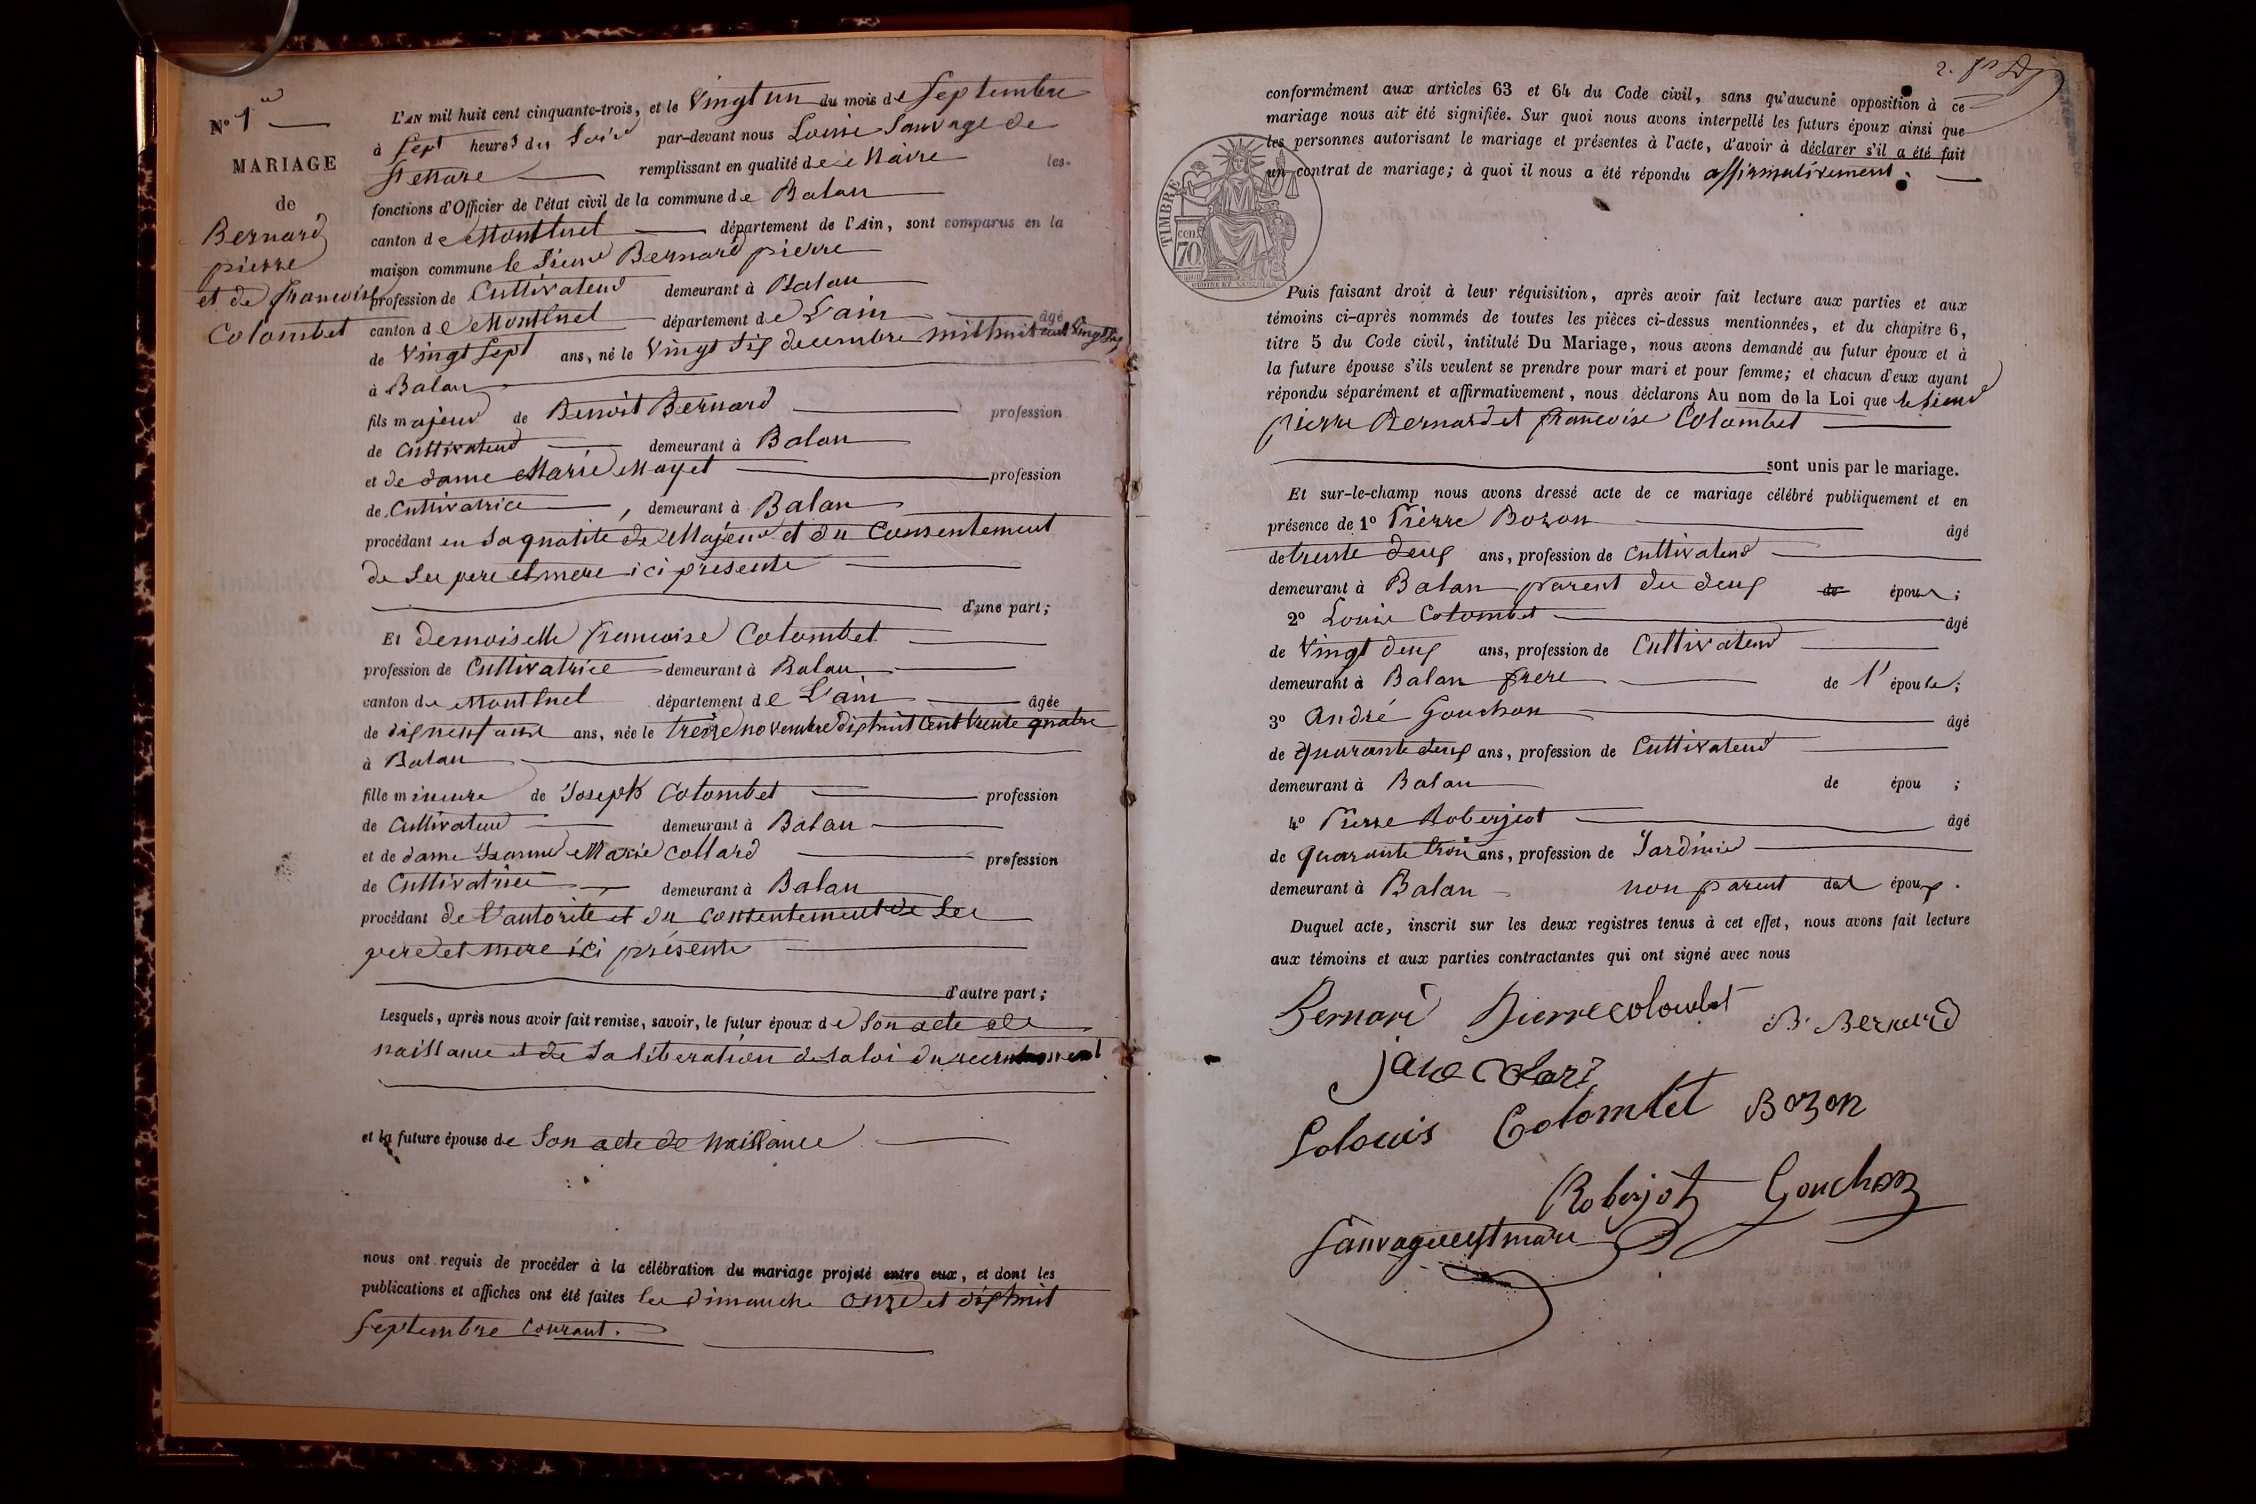 N° 1er
MARIAGE
de
Bernard
pierre
et de francoise
Colombet
L'AN mil huit cent cinquante-trois, et le Vingt un du mois de Septembre
à Sept heures du Soir par-devant nous Louis Sauvage de
St Mare remplissant en qualité de Maire les
fonctions d'Officier de l'état civil de la commune de Balan
canton de Montluel département de l'Ain, sont comparus en la
maison commune le Sieur Bernard pierre
profession de Cultivateur demeurant à Balan
canton de Montluel département de L'ain âgé
de Vingt Sept ans, né le Vingt Six decembre mil huit cent Vingt
à Balan
fils majeur de Benoit Bernard profession
de Cultivateur demeurant à Balan
et de dame Marie Mayet profession
de Cultivatrice, demeurant à Balan
procédant en Sa qualité de Majeur et du Consentement
de Ses pere et mere ici présents
d'une part;
Et demoiselle francoise Colombet
profession de Cultivatrice demeurant à Balan
canton de Montluel département de L'ain âgée
de dix neuf ans ans, née le treize novembre dix huit cent trente quatre
à Balan
fille mineure de Joseph Colombet profession
de Cultivateur demeurant à Balan
et de dame Jeanne Marie Collard profession
de Cultivatrice demeurant à Balan
procédant de l'autorité et du consentement de Ses
pere et mere ici présents
d'autre part;
Lesquels, après nous avoir fait remise, savoir, le futur époux de Son acte de
naissance et de Sa libération de la loi du recrutement
et la future épouse de Son acte de naissance
nous ont requis de procéder à la célébration du mariage projeté entre eux, et dont les
publications et affiches ont été faites les dimanche onze et dix huit
Septembre courant.
2.
conformément aux articles 63 et 64 du Code civil, sans qu'aucune opposition à ce
mariage nous ait été signifiée. Sur quoi nous avons interpellé les futurs époux ainsi que
les personnes autorisant le mariage et présentes à l'acte, d'avoir à déclarer s'il a été fait
un contrat de mariage; à quoi il nous a été répondu affirmativement.
TIMBRE
70
Puis faisant droit à leur réquisition, après avoir fait lecture aux parties et aux
témoins ci-après nommés de toutes les pièces ci-dessus mentionnées, et du chapitre 6,
titre 5 du Code civil, intitulé Du Mariage, nous avons demandé au futur époux et à
la future épouse s'ils veulent se prendre pour mari et pour femme; et chacun d'eux ayant
répondu séparément et affirmativement, nous déclarons Au nom de la Loi que le Sieur
pierre Bernard et francoise Colombet
sont unis par le mariage.
Et sur-le-champ nous avons dressé acte de ce mariage célébré publiquement et en
présence de 1° Pierre Bozon âgé
de trente deux ans, profession de Cultivateur
demeurant à Balan parent du deux de époux;
2° Louis Colombet âgé
de Vingt deux ans, profession de Cultivateur
demeurant à Balan frere de l'épouse;
3° André Gouchon âgé
de quarante deux ans, profession de Cultivateur
demeurant à Balan de épou ;
4° Pierre Roberjot âgé
de quarante trois ans, profession de Jardinier
demeurant à Balan non parent des époux.
Duquel acte, inscrit sur les deux registres tenus à cet effet, nous avons fait lecture
aux témoins et aux parties contractantes qui ont signé avec nous
Bernard Pierre Colombet B. Bernard
Colouis Colombet Bozon
Roberjot Gouchon